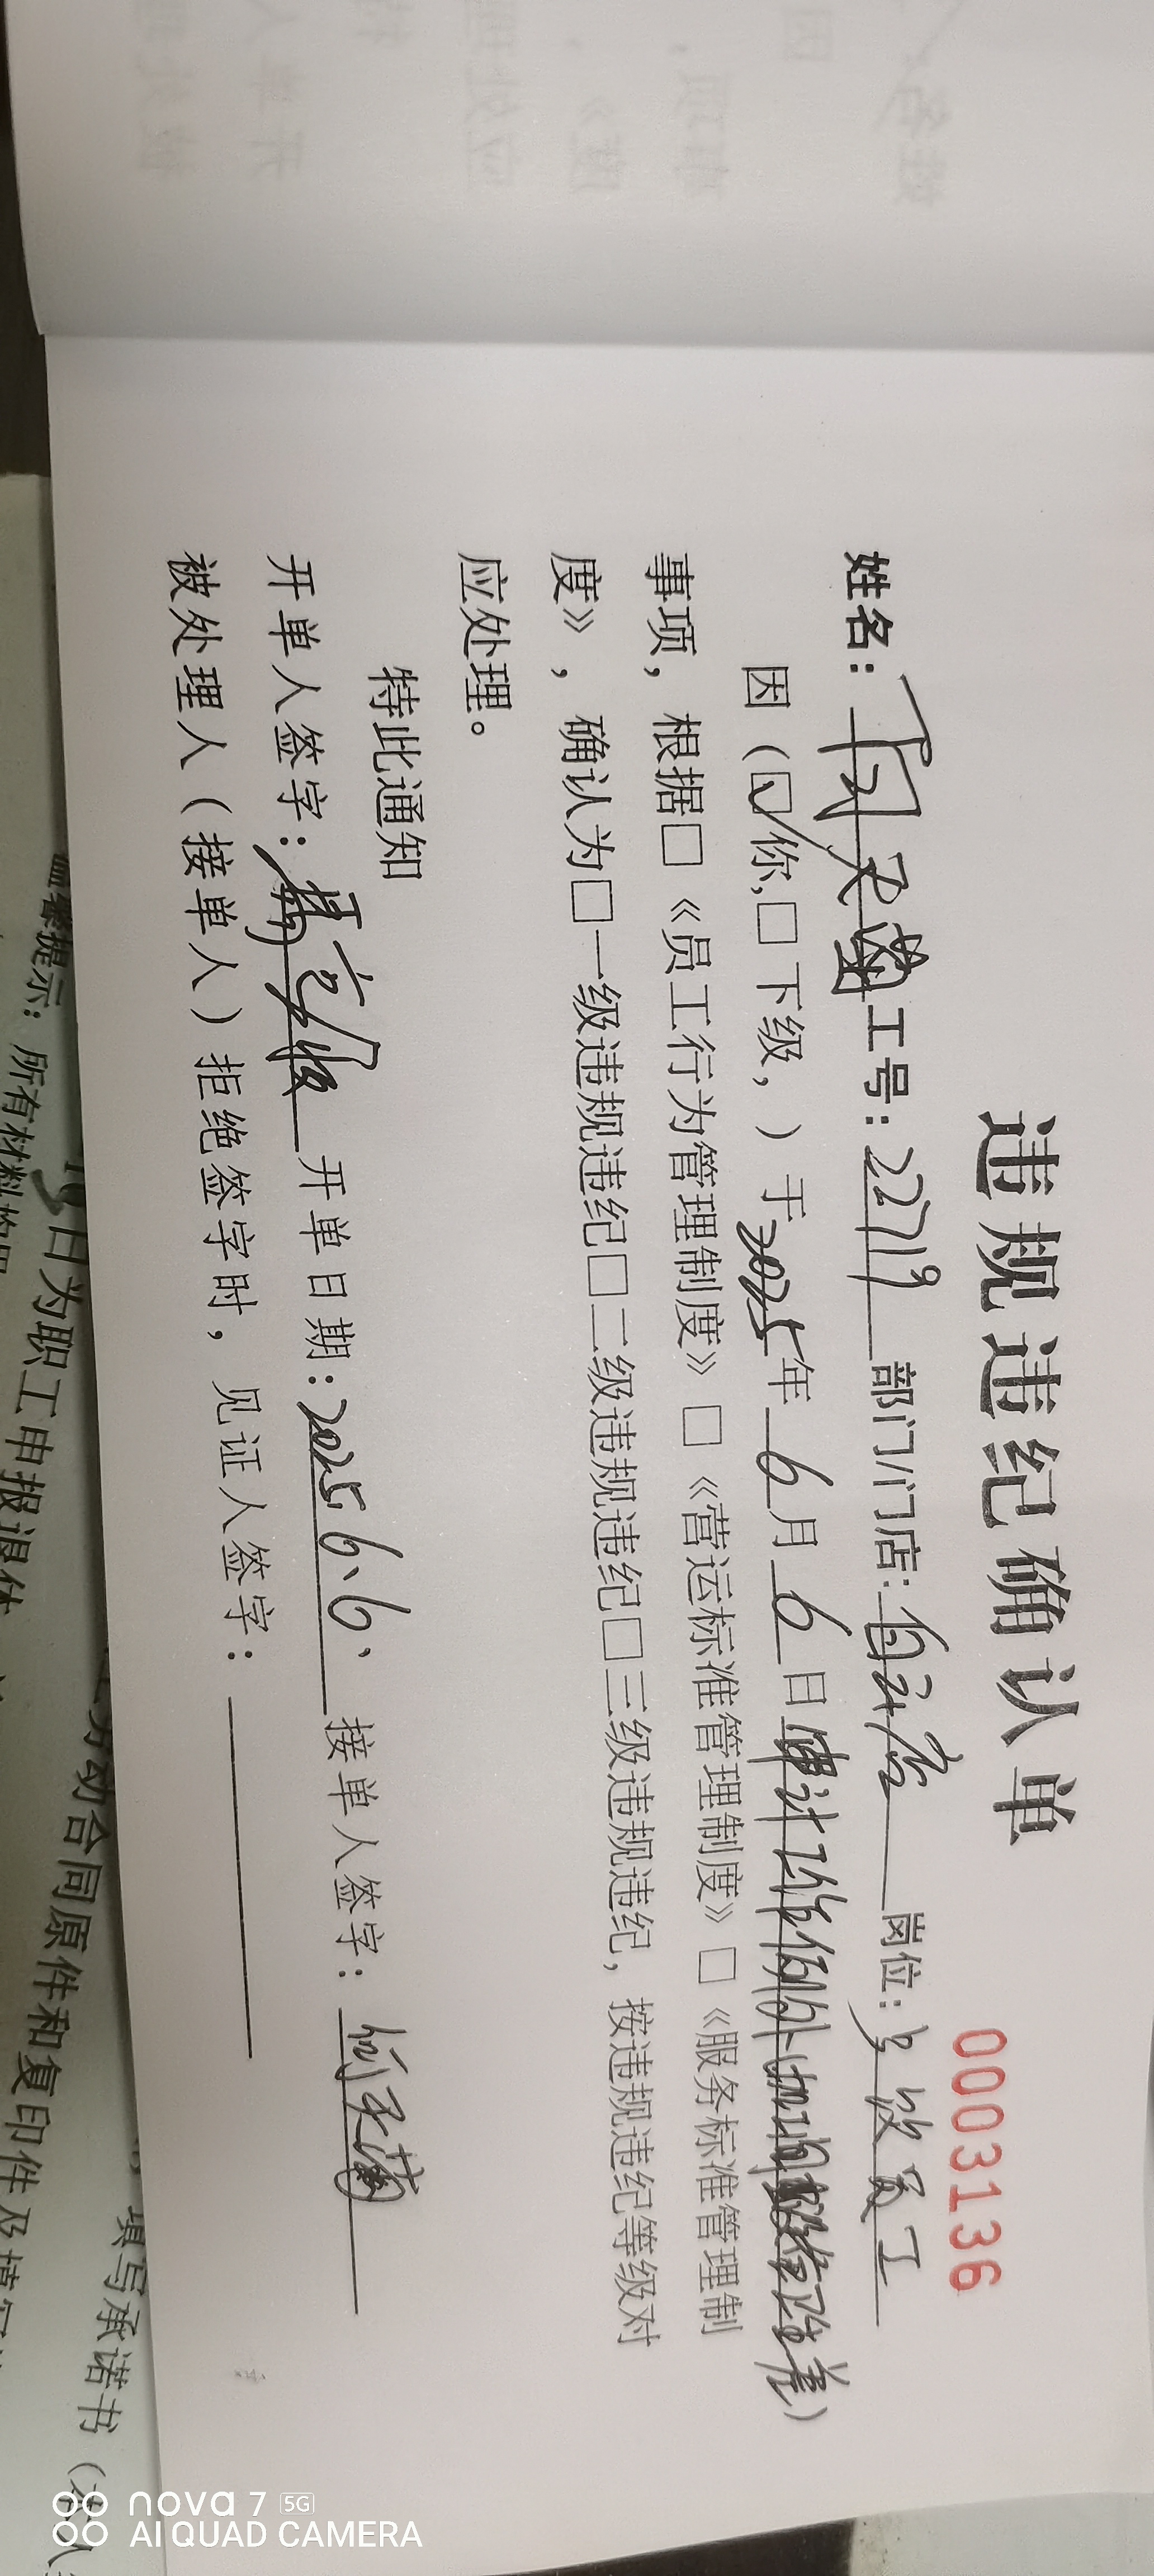 违规违纪确认单
0003136
姓名：何天菊工号：22719部门/门店：白云店岗位：女收员工
因（☑你,□下级，）于2025年6月6日审计工作例外
事项，根据□《员工行为管理制度》□《营运标准管理制度》□《服务标准管理制
度》，确认为□一级违规违纪□二级违规违纪□三级违规违纪，按违规违纪等级对
应处理。
特此通知
开单人签字：开单日期：2025.6.6.接单人签字：何天菊
被处理人（接单人）拒绝签字时，见证人签字：
温馨提示：所有材料均用
19日为职工申报退休
劳动合同原件和复印件及填写
填写承诺书（本人
nova 7 5G
AI QUAD CAMERA